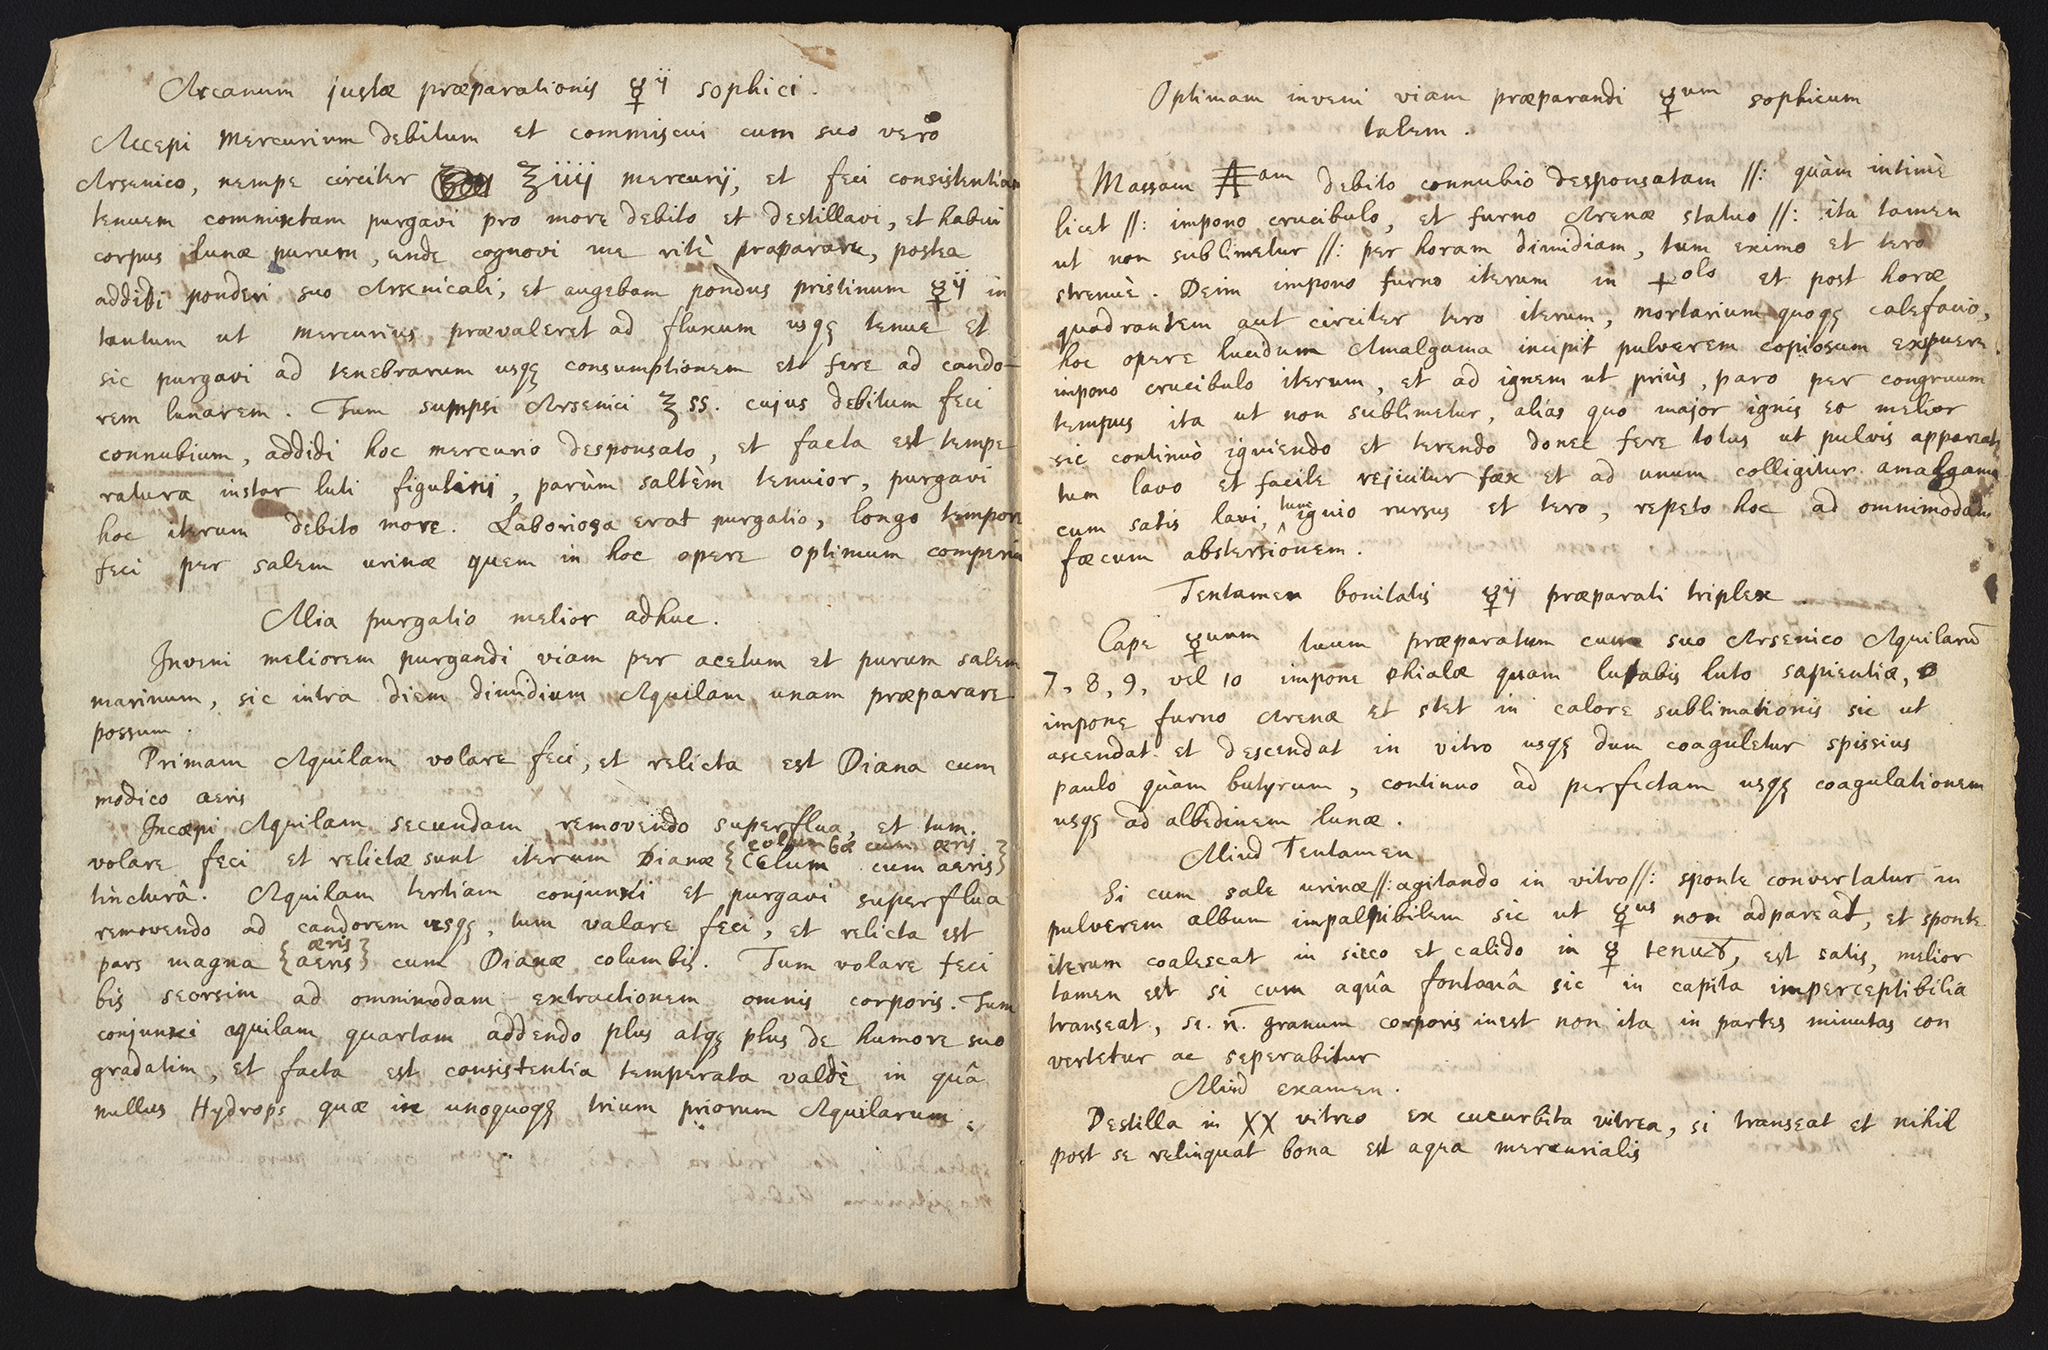 Arcanum justæ præparationis ☿ij sophici.
Accepi mercurium debitum et commiscui cum suo vero
Arsenico, nempe circiter ℥iiij mercurij, et feci consistentiam
tenuem commixtam purgavi pro more debito et destillavi, et habui
corpus lunæ purum, unde cognovi me ritè præparare, postea
addidi ponderi suo Arsenicali, et augebam pondus pristinum ☿ij in
tantum ut mercurius prævaleret ad fluxum usqꝫ tenue et
sic purgavi ad tenebrarum usqꝫ consumptionem et fere ad cando-
rem lunarem. Tum sumpsi Arsenici ℥ss. cujus debitum feci
connubium, addidi hoc mercurio desponsato, et facta est tempe
ratura instar luti figulini, parùm saltèm tenuior, purgavi
hoc iterum debito more. Laboriosa erat purgatio, longo tempore
feci per salem urinæ quem in hoc opere optimum comperiu
Alia purgatio melior adhuc.
Inveni meliorem purgandi viam per acetum et purum salem
marinum, sic intra diem dimidium Aquilam unam præparare
possum.
Primam Aquilam volare feci, et relicta est Diana cum
modico aeris
Incæpi Aquilam secundam removendo superflua, et tum.
columbæ cum æris
volare feci et relictæ sunt iterum Dianæ {Celum cum aeris}
tincturâ. Aquilam tertiam conjunxi et purgavi superflua
removendo ad candorem usqꝫ, tum valare feci, et relicta est
æris
pars magna {aeris} cum Dianæ columbis. Tum volare feci
bis seorsim ad omnimodam extractionem omnis corporis. Tum
conjunxi aquilam quartam addendo plus atqꝫ plus de humore suo
gradatim, et facta est consistentia temperata valdè in quâ
nullus Hydrops quæ in unoquoqꝫ trium priorum Aquilarum.
Optimam inveni viam præparandi ☿um sophicum
talem.
Massam am debito connubio desponsatam //: quàm intimè
licet //: impono crucibulo, et furno Arenæ statuo //: ita tamen
ut non sublimetur //: per horam dimidiam, tum eximo et tero
strenuè. Dein impono furno iterum in +olo et post horæ
quadrantem aut circiter tero iterum, mortarium quoqꝫ calefacio,
hoc opere lucidum Amalgama incipit pulverem copiosum expuere.
impono crucibulo iterum, et ad ignem ut priùs, paro per congruum
tempus ita ut non sublimetur, alias quo major ignis eo melior
sic continuò igniendo et terendo donec fere totus ut pulvis appareat,
tum lavo et facile rejicitur fæx et ad unum colligitur amalgama
tunc
cum satis lavi, ^ ignio rursus et tero, repeto hoc ad omnimodam
fæcum abstersionem.
Tentamen bonitatis ☿ij præparati triplex.
Cape ☿uum tuum præparatum cum suo Arsenico Aquilarū
7, 8, 9, vel 10 impone phialæ quam lutabis luto sapientiæ,
impone furno Arenæ et stet in calore sublimationis sic ut
ascendat et descendat in vitro usqꝫ dum coaguletur spissius
paulo quàm butyrum, continuo ad perfectam usqꝫ coagulationem
usqꝫ ad albedinem lunæ.
Aliud Tentamen
Si cum sale urinæ //: agitando in vitro //: sponte convertatur in
pulverem album impalpibilem sic ut ☿us non adpareat, et sponte
iterum coalescat in sicco et calido in ☿ tenuem, est satis, melior
tamen est si cum aquâ fontanâ sic in capita imperceptibilia
transeat, se. n̄. granum corporis inest non ita in partes minutas con
vertetur ac seperabitur
Aliud examen.
Destilla in XX vitreo ex cucurbita vitrea, si transeat et nihil
post se relinquat bona est aqua mercurialis